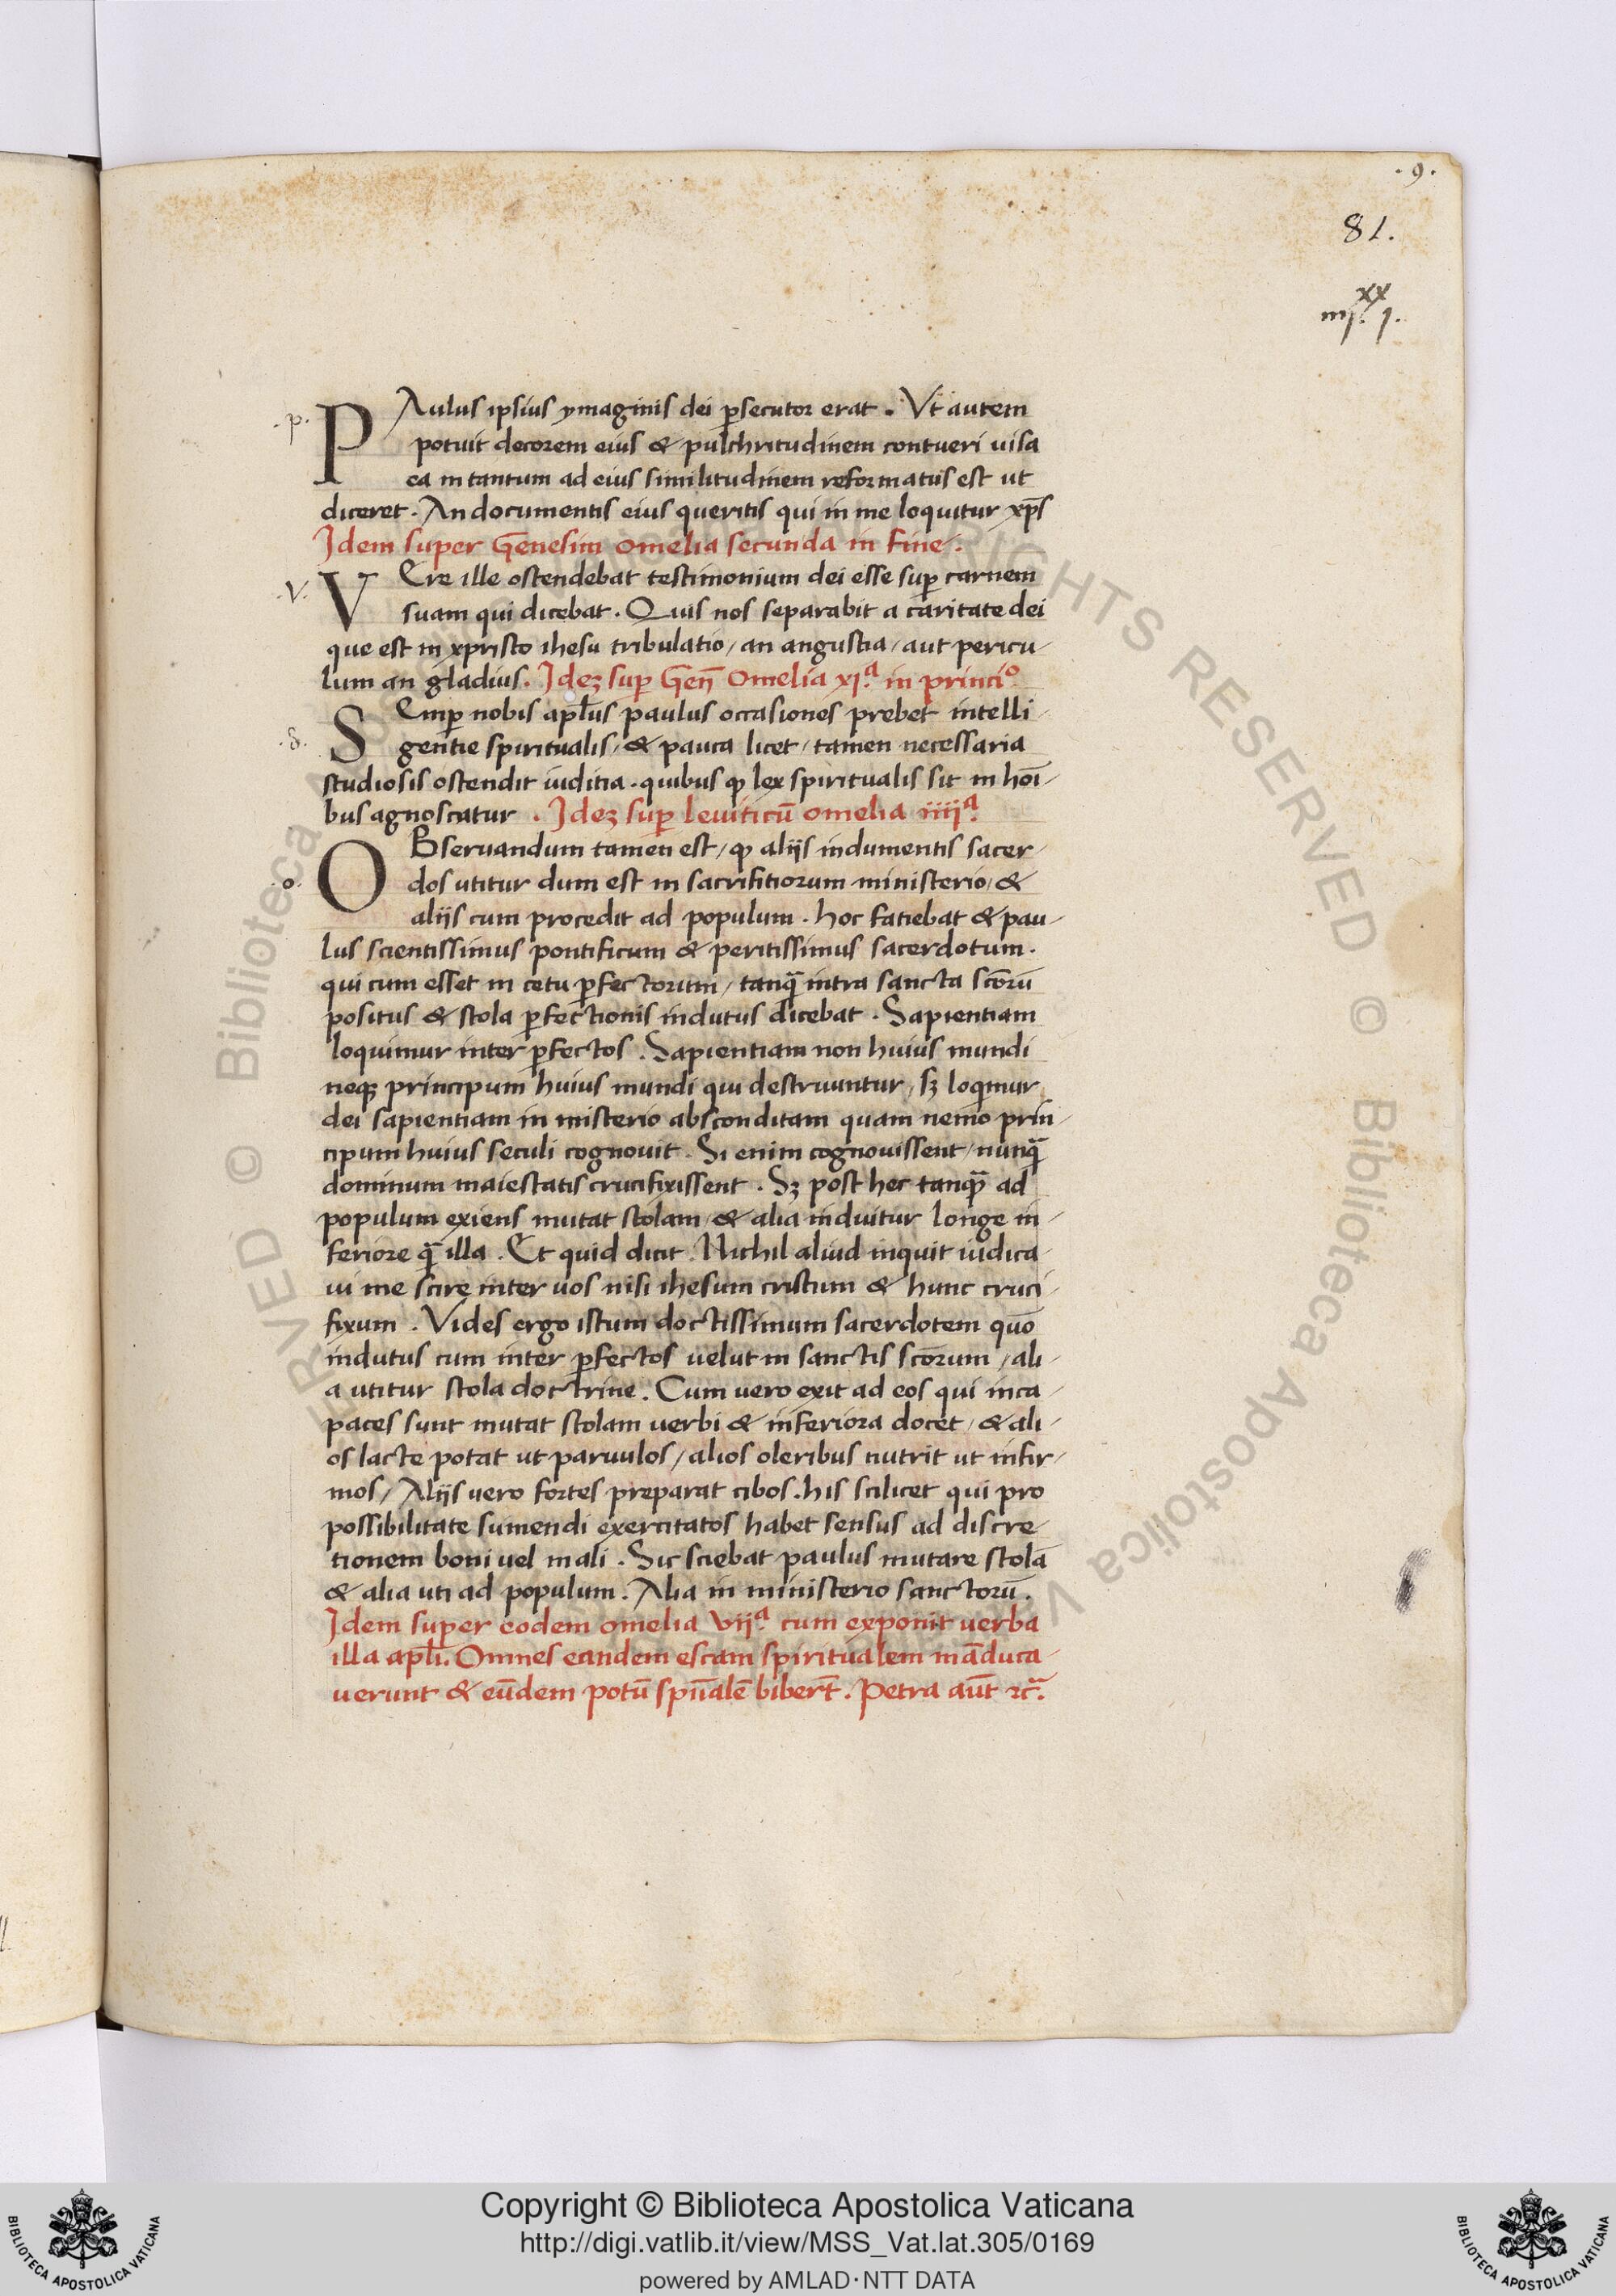 .9.
81.
xx
iiij. j.
.p.
PAulus ipsius ymaginis dei ꝑsecutor erat . Vt autem
potuit decorem eius & pulchritudinem contueri uisa
ea in tantum ad eius similitudinem reformatus est ut
diceret . An documentis eius queritis qui in me loquitur xp̄s
Idem super Genesim omelia secunda in fine .
.v.
VEre ille ostendebat testimonium dei esse suꝑ carnem
suam qui dicebat . Quis nos separabit a caritate dei
que est in xpristo ihesu tribulatio / an angustia / aut pericu-
lum an gladius . Ideʒ suꝑ Geñ Omelia xi.ª in princiº
.s.
SEmꝑ nobis apl̄us paulus occasiones prebet intelli-
gentie spiritualis / & pauca licet / tamen necessaria
studiosis ostendit iuditia . quibus ꝙ lex spiritualis sit in hoī-
bus agnoscatur . Ideʒ suꝑ leuiticū omelia iiiiª.
.o.
OBseruandum tamen est / ꝙ aliis indumentis sacer-
dos utitur dum est in sacrifitiorum ministerio / &
aliis cum procedit ad populum . hoc fatiebat & pau-
lus scientissimus pontificum & peritissimus sacerdotum .
qui cum esset in cetu ꝑfectorum / tanq̄ intra sancta sc̄orū
positus & stola ꝑfectionis indutus dicebat . Sapientiam
loquimur inter ꝑfectos . Sapientiam non huius mundi
neqꝫ principum huius mundi qui destruuntur / sꝫ loqimur
dei sapientiam in misterio absconditam quam nemo prin-
cipum huius seculi cognouit . Si enim cognouissent / nunq̄
dominum maiestatis crucifixissent . Sꝫ post hec tanqꝫ̄ ad
populum exiens mutat stolam / & alia induitur longe in-
feriore q̄ illa . Et quid dicit . Nichil aliud inquit iudica-
ui me scire inter uos nisi ihesum cristum & hunc cruci-
fixum . Vides ergo istum doctissimum sacerdotem quō
indutus cum inter ꝑfectos uelut in sanctis sc̄orum / ali-
a utitur stola doctrine . Cum uero exit ad eos qui inca-
paces sunt mutat stolam uerbi & inferiora docet / & ali-
os lacte potat ut paruulos / alios oleribus nutrit ut infir-
mos / Aliis uero fortes preparat cibos . his scilicet qui pro
possibilitate sumendi exercitatos habet sensus ad discre-
tionem boni uel mali . Sic sciebat paulus mutare stolā
& alia uti ad populum . Alia in ministerio sanctorū .
Idem super eodem omelia viiª. cum exponit uerba
illa apl̄i . Omnes eandem escam spiritualem māduca-
uerunt & eūdem potū spūalē biber̄t . Petra aūt ⁊c̄ª.
Copyright © Biblioteca Apostolica Vaticana
http://digi.vatlib.it/view/MSS_Vat.lat.305/0169
powered by AMLAD·NTT DATA
BIBLIOTECA APOSTOLICA VATICANA
BIBLIOTECA APOSTOLICA VATICANA